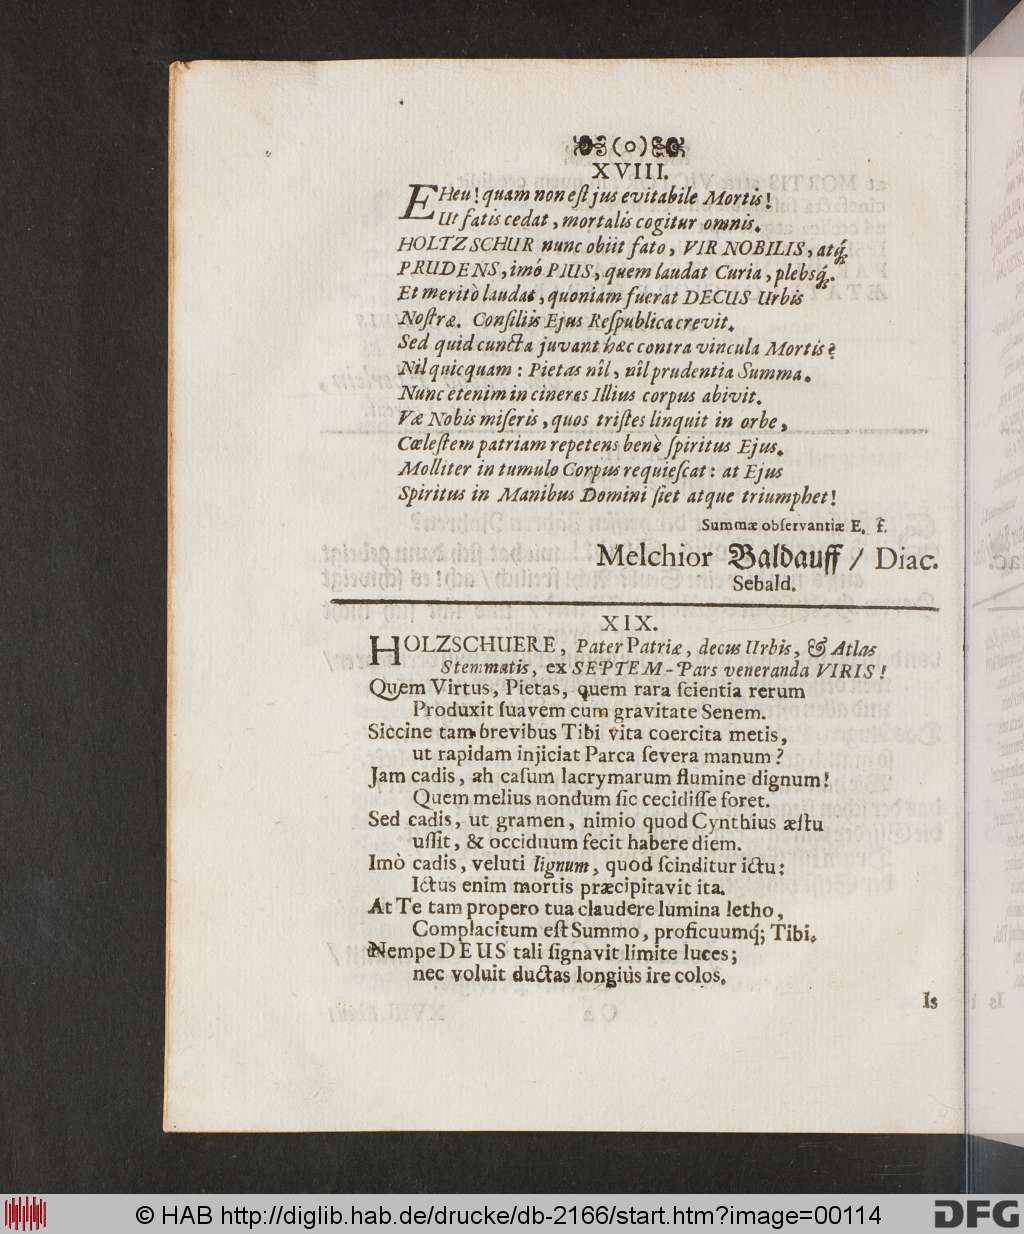 (o)
XVIII.
EHeu! quam non eſt jus evitabile Mortis!
Ut fatis cedat, mortalis cogitur omnis.
HOLTZSCHUR nunc obiit fato, VIR NOBILIS, atq́;
PRUDENS, imó PIUS, quem laudat Curia, plebsq́;.
Et meritò laudat, quoniam fuerat DECUS Urbis
Noſtræ. Conſiliis Ejus Reſpublica crevit.
Sed quid cuncta juvant hæc contra vincula Mortis?
Nil quicquam: Pietas nîl, nîl prudentia Summa.
Nunc etenim in cineres Illius corpus abivit.
Væ Nobis miſeris, quos triſtes linquit in orbe,
Cœleſtem patriam repetens benè ſpiritus Ejus.
Molliter in tumulo Corpus requieſcat: at Ejus
Spiritus in Manibus Domini ſiet atque triumphet!
Summæ obſervantiæ E. f.
Melchior Baldauff / Diac.
Sebald.
XIX.
HOLZSCHUERE, Pater Patriæ, decus Urbis, & Atlas
Stemmatis, ex SEPTEM-Pars veneranda VIRIS!
Quem Virtus, Pietas, quem rara ſcientia rerum
Produxit ſuavem cum gravitate Senem.
Siccine tam brevibus Tibi vita coercita metis,
ut rapidam injiciat Parca ſevera manum?
Jam cadis, ah caſum lacrymarum flumine dignum!
Quem melius nondum ſic cecidiſſe foret.
Sed cadis, ut gramen, nimio quod Cynthius æſtu
uſſit, & occiduum fecit habere diem.
Imò cadis, veluti lignum, quod ſcinditur ictu:
Ictus enim mortis præcipitavit ita.
At Te tam propero tua claudere lumina letho,
Complacitum eſt Summo, proficuumq́; Tibi.
Nempe DEUS tali ſignavit limite luces;
nec voluit ductas longiùs ire colos.
Is
© HAB http://diglib.hab.de/drucke/db-2166/start.htm?image=00114
DFG